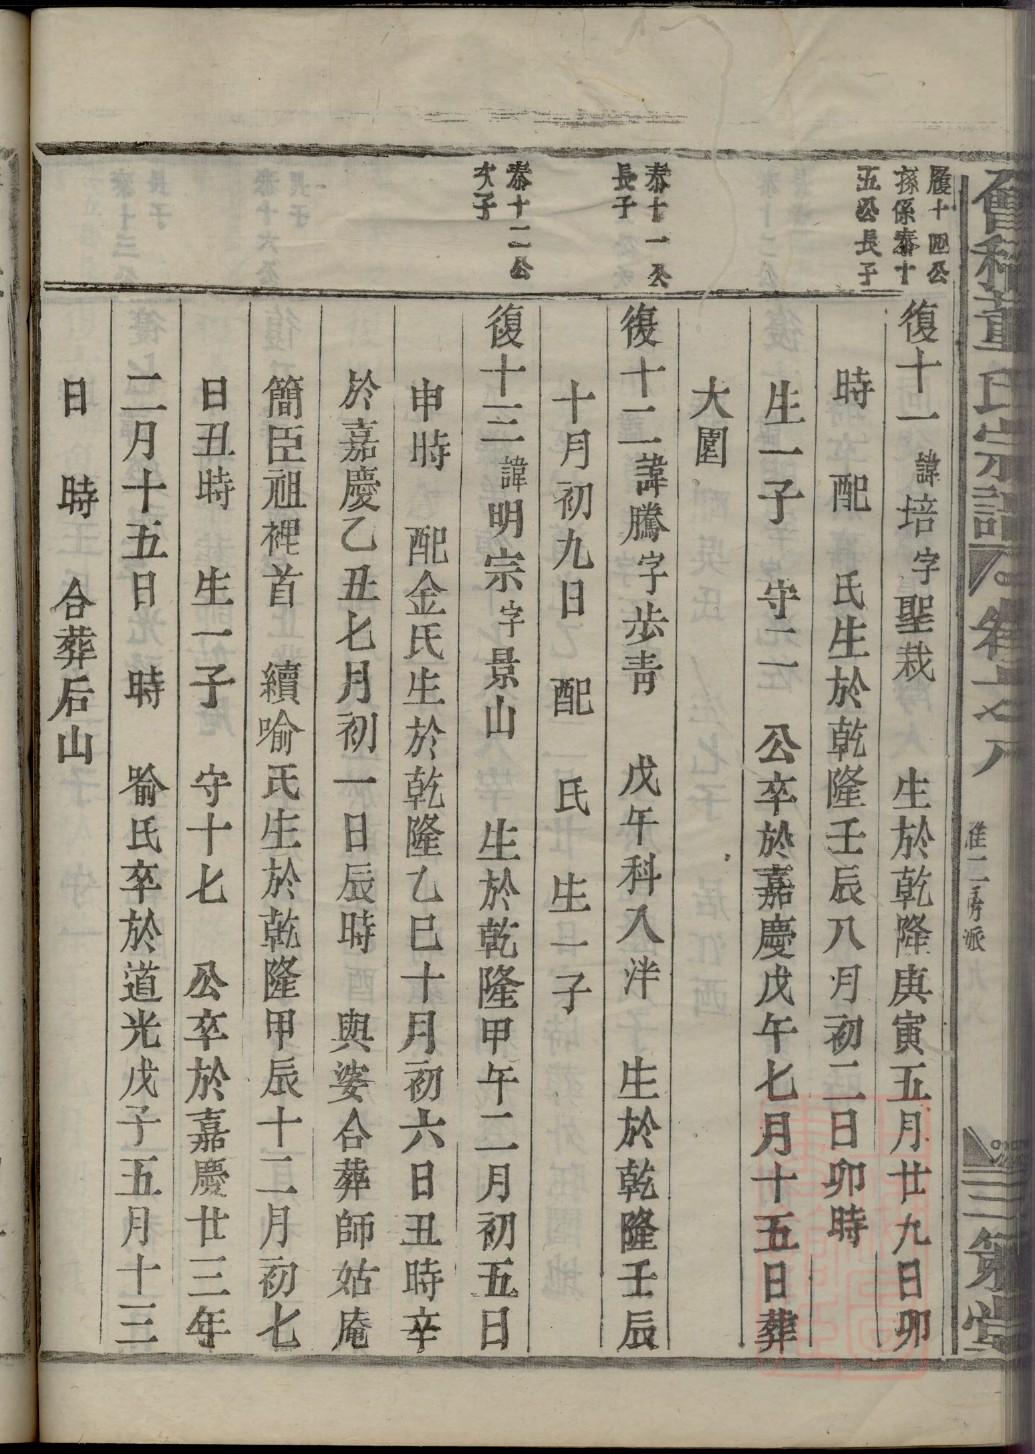 會稽董氏宗譜
卷之八
三策堂
履十四公
孫係泰十
五公長子
復十一諱培字聖栽 生於乾隆庚寅五月廿九日卯
時 配 氏生於乾隆壬辰八月初二日卯時
生一子 守二 公卒於嘉慶戊午七月十五日葬
大圍
泰十一公
長子
復十二諱騰字步青 戊午科入泮 生於乾隆壬辰
十月初九日 配 氏 生一子
泰十二公
次子
復十三諱明宗字景山 生於乾隆甲午二月初五日
申時 配金氏生於乾隆乙巳十月初六日丑時卒
於嘉慶乙丑七月初一日辰時 與婆合葬師姑庵
簡臣祖裡首 續喻氏生於乾隆甲辰十二月初七
日丑時 生一子 守十七 公卒於嘉慶廿三年
二月十五日 時 喻氏卒於道光戊子五月十三
日 時 合葬后山